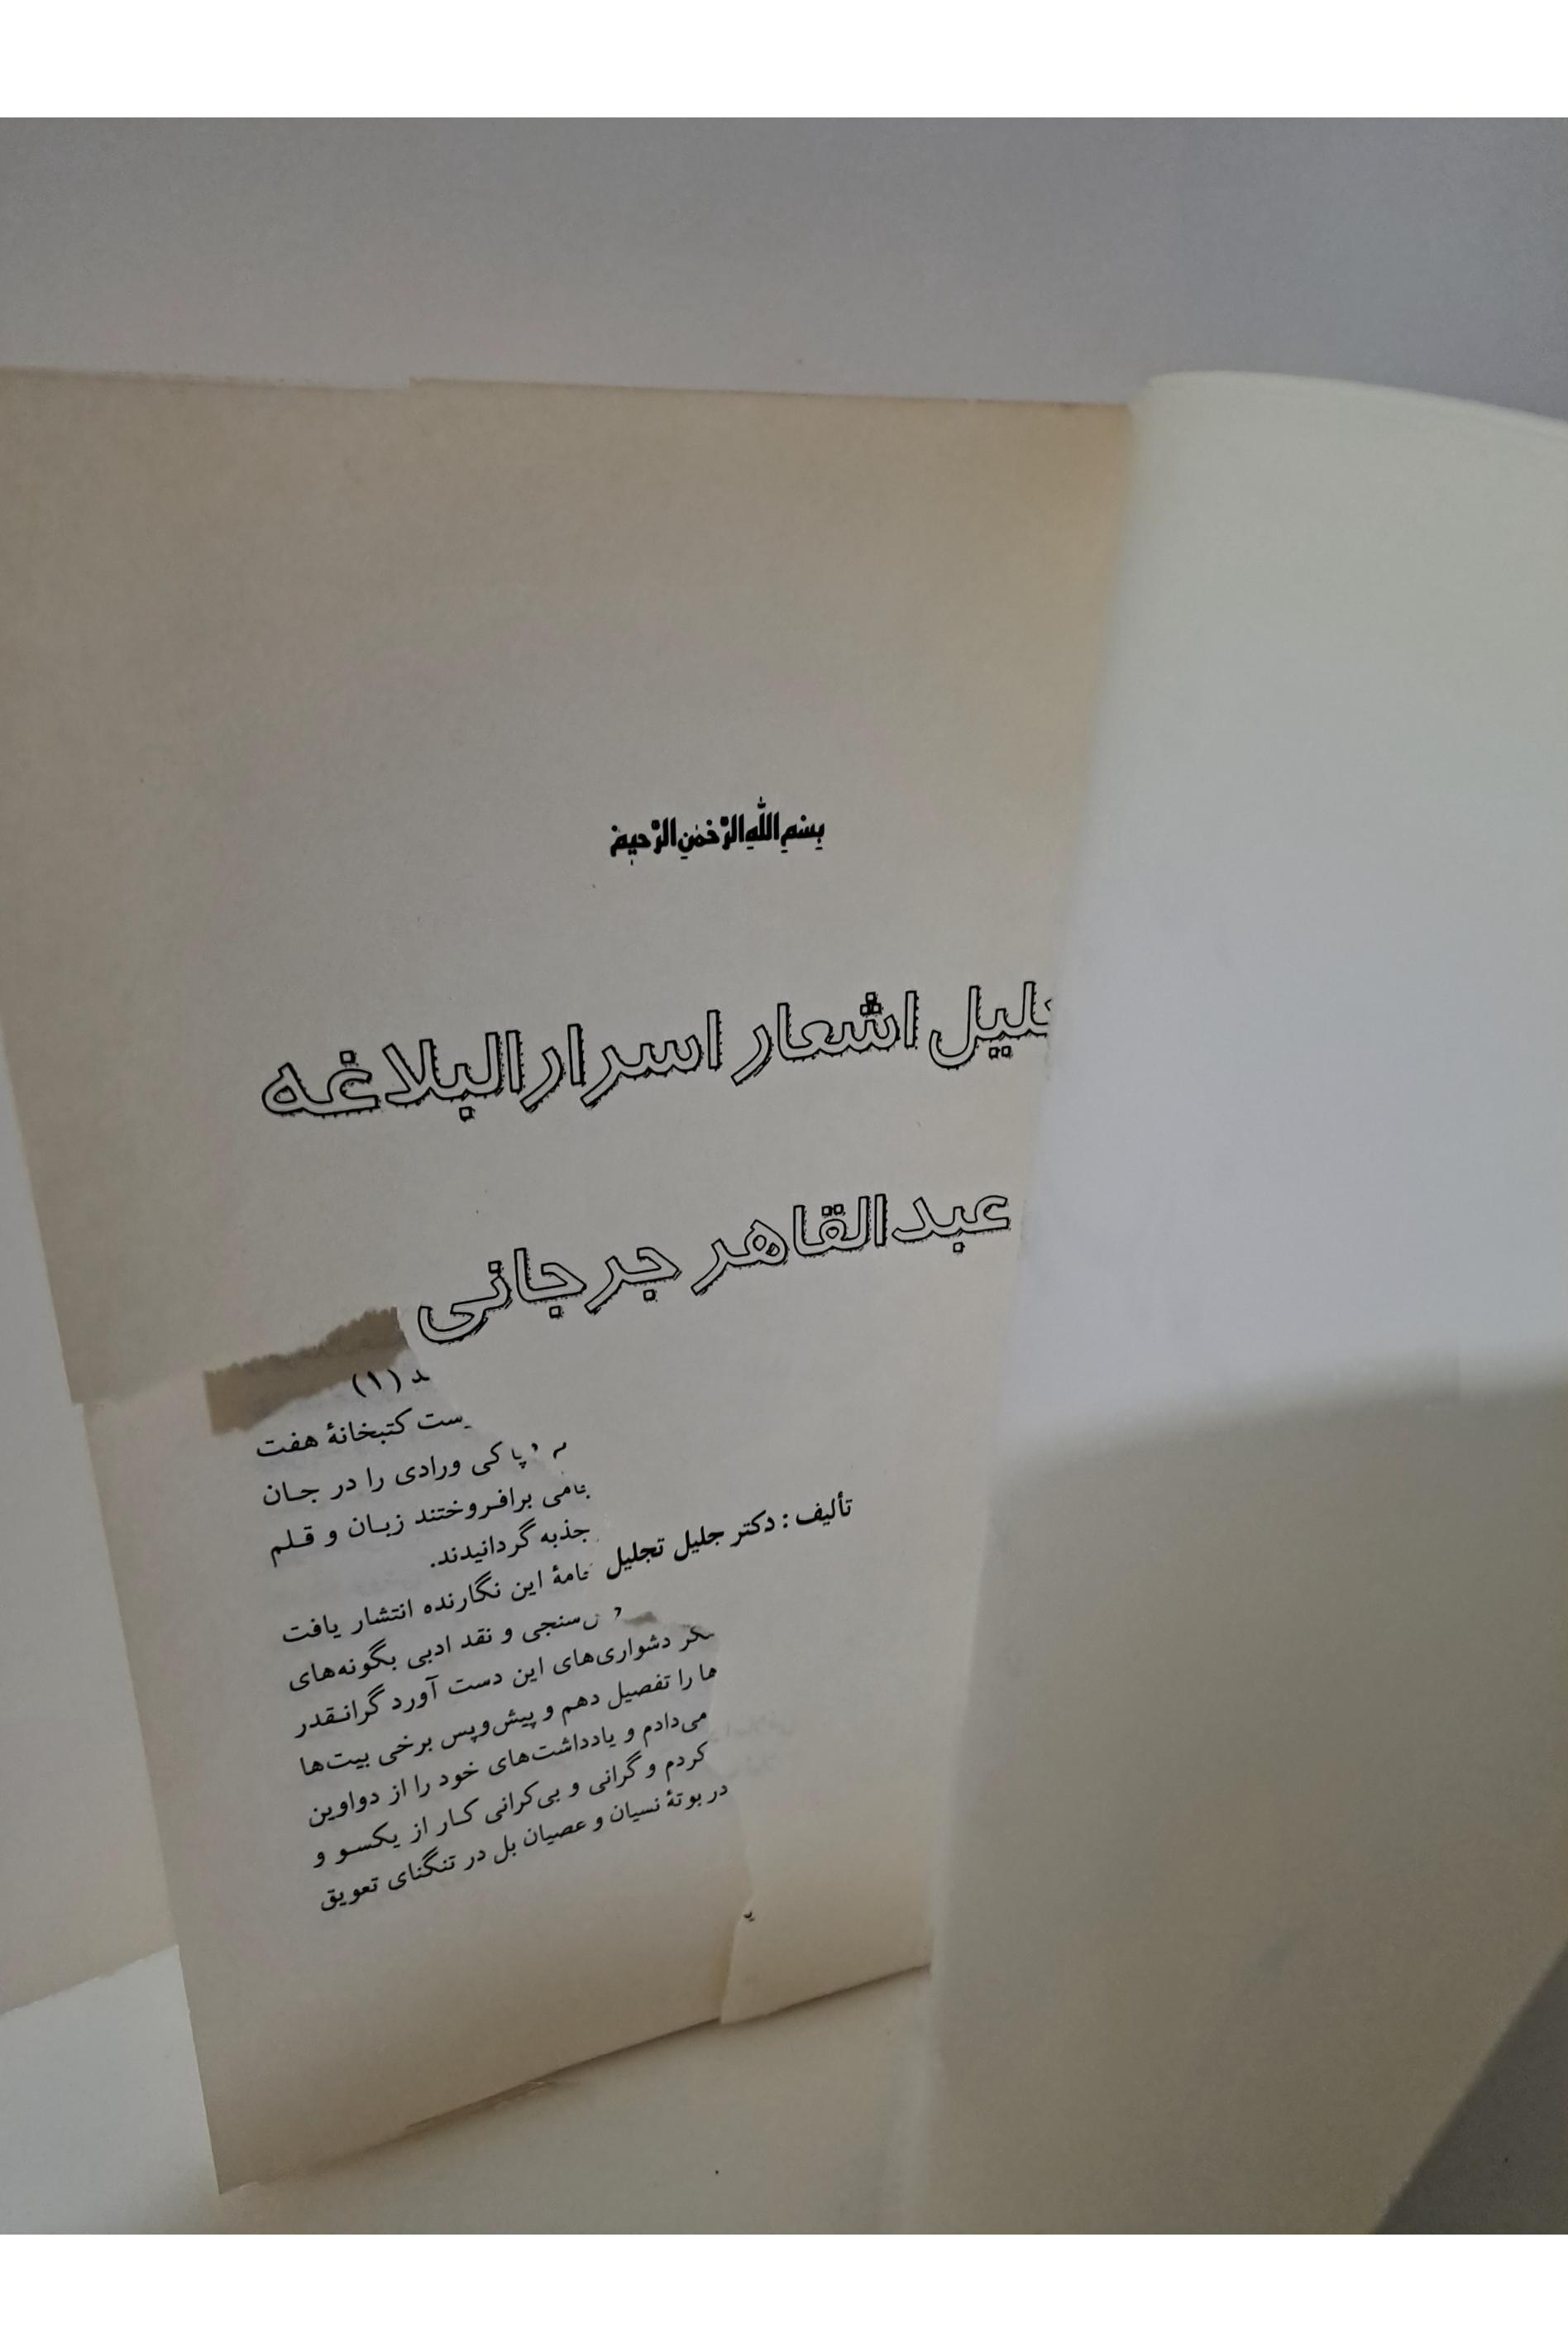 بِسْمِ اللّٰهِ الرَّحْمٰنِ الرَّحِیمِ
اشعار اسرارالبلاغه
عبدالقاهر جرجانی
تألیف : دکتر جلیل تجلیل
(۱)
کتبخانهٔ هفت
ورادی را در جان
برافروختند زبان و قلم
جذبه گردانیدند.
این نگارنده انتشار یافت
و نقد ادبی بگونه‌های
دشواری‌های این دست آورد گرانقدر
ها را تفصیل دهم و پیش‌وپس برخی بیت‌ها
می‌دادم و یادداشت‌های خود را از دواوین
کردم و گرانی و بی‌کرانی کار از یکسو و
در بوتهٔ نسیان و عصیان بل در تنگنای تعویق